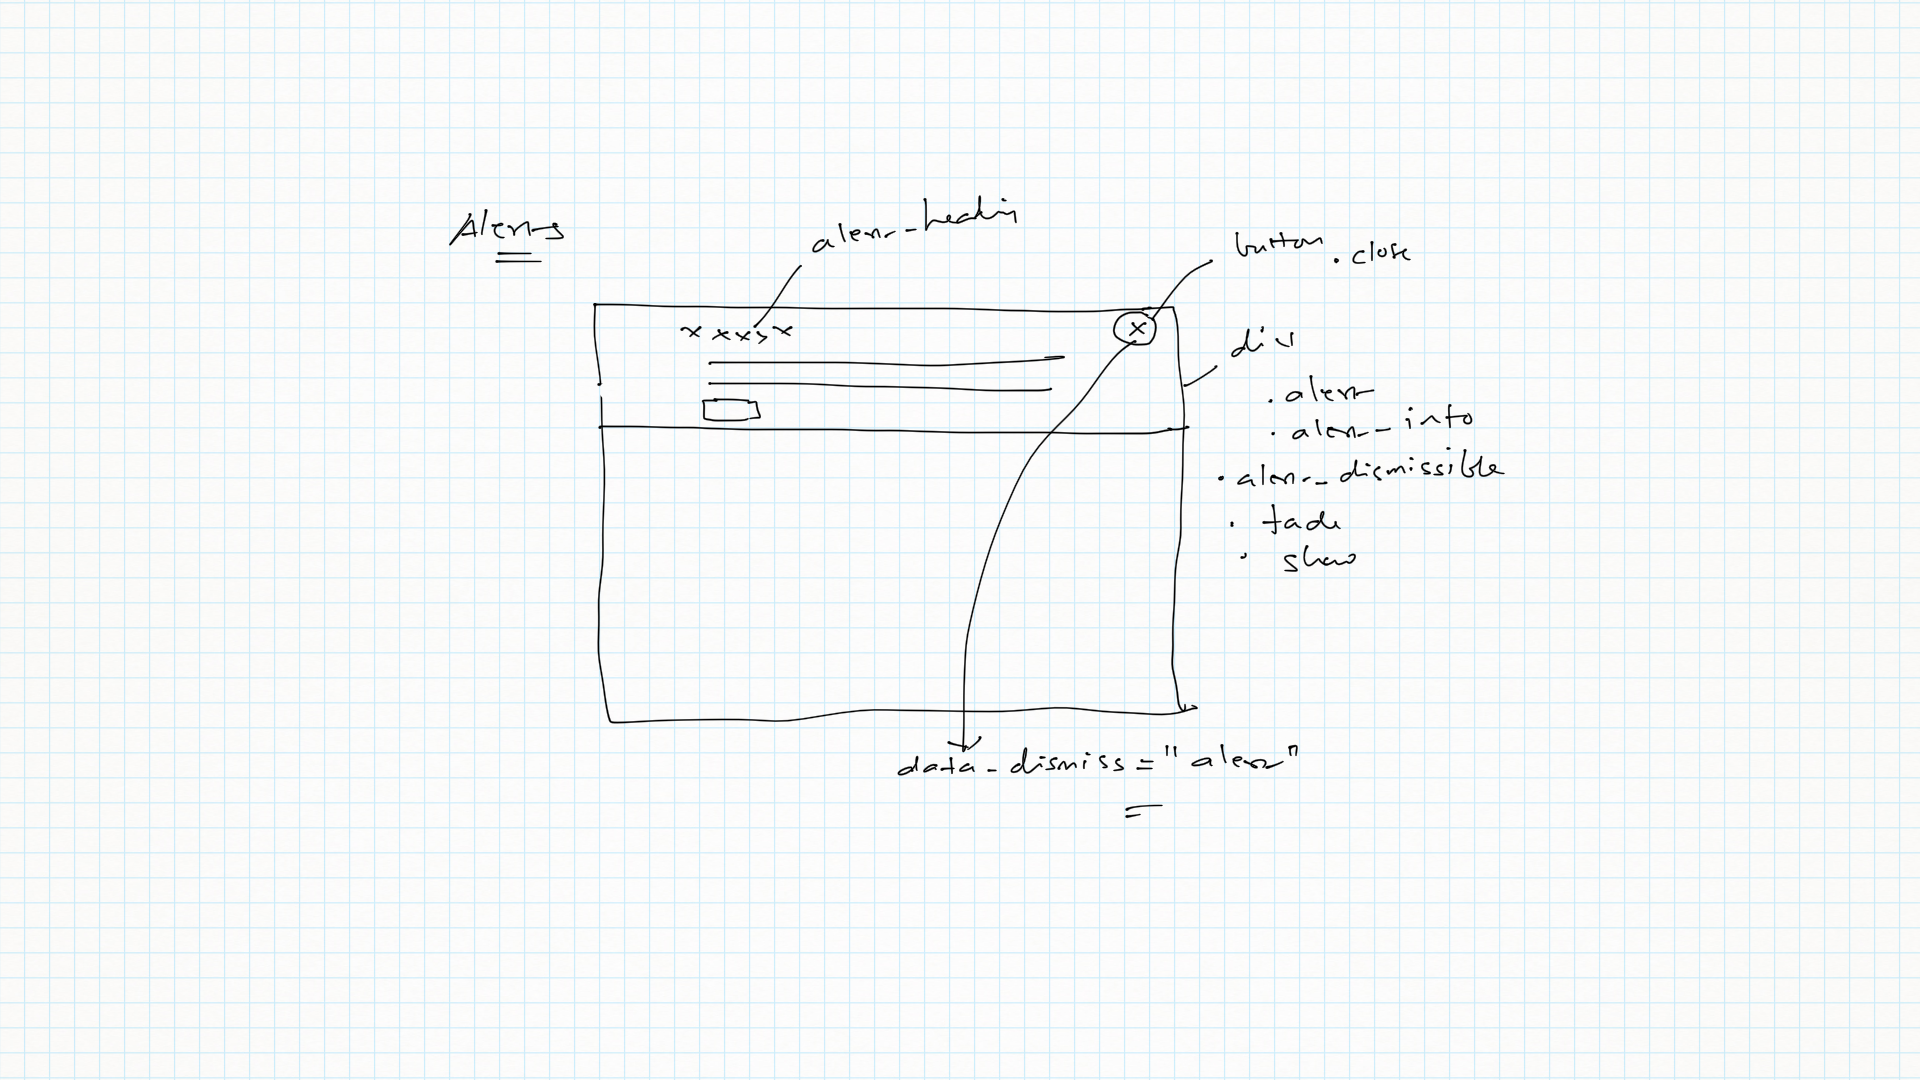 Alerts
alert-heading
button .close
x x x x x
x
div
. alert
. alert-info
. alert-dismissible
. fade
. show
data-dismiss="alert"